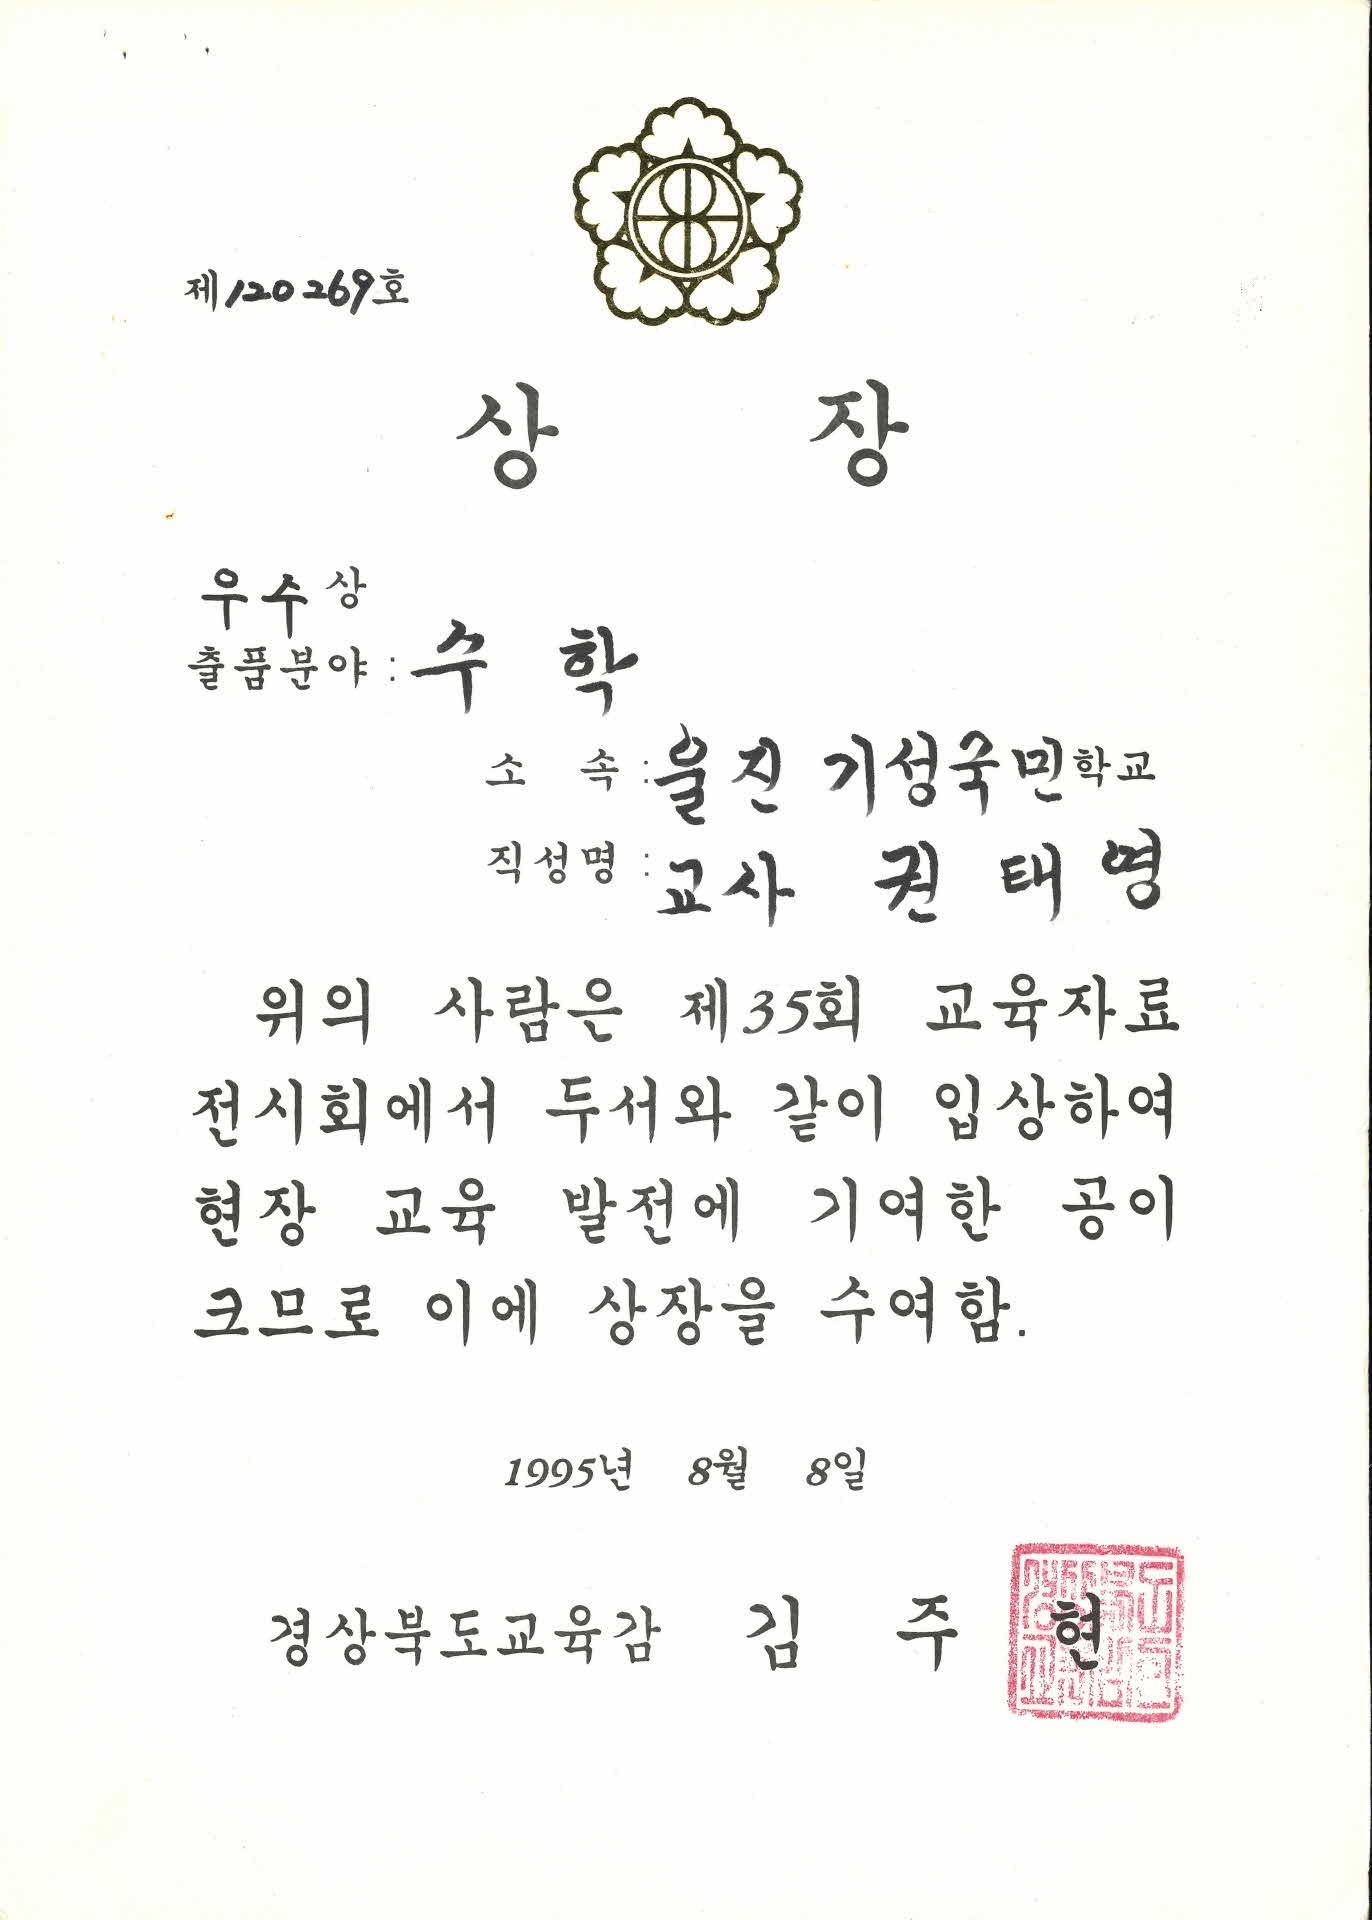 제120269호
상 장
우수상
출품분야 : 수 학
소 속 : 울진 기성국민학교
직성명 : 교사 권 태 영
위의 사람은 제35회 교육자료
전시회에서 두서와 같이 입상하여
현장 교육 발전에 기여한 공이
크므로 이에 상장을 수여함.
1995년 8월 8일
경상북도교육감 김 주 현